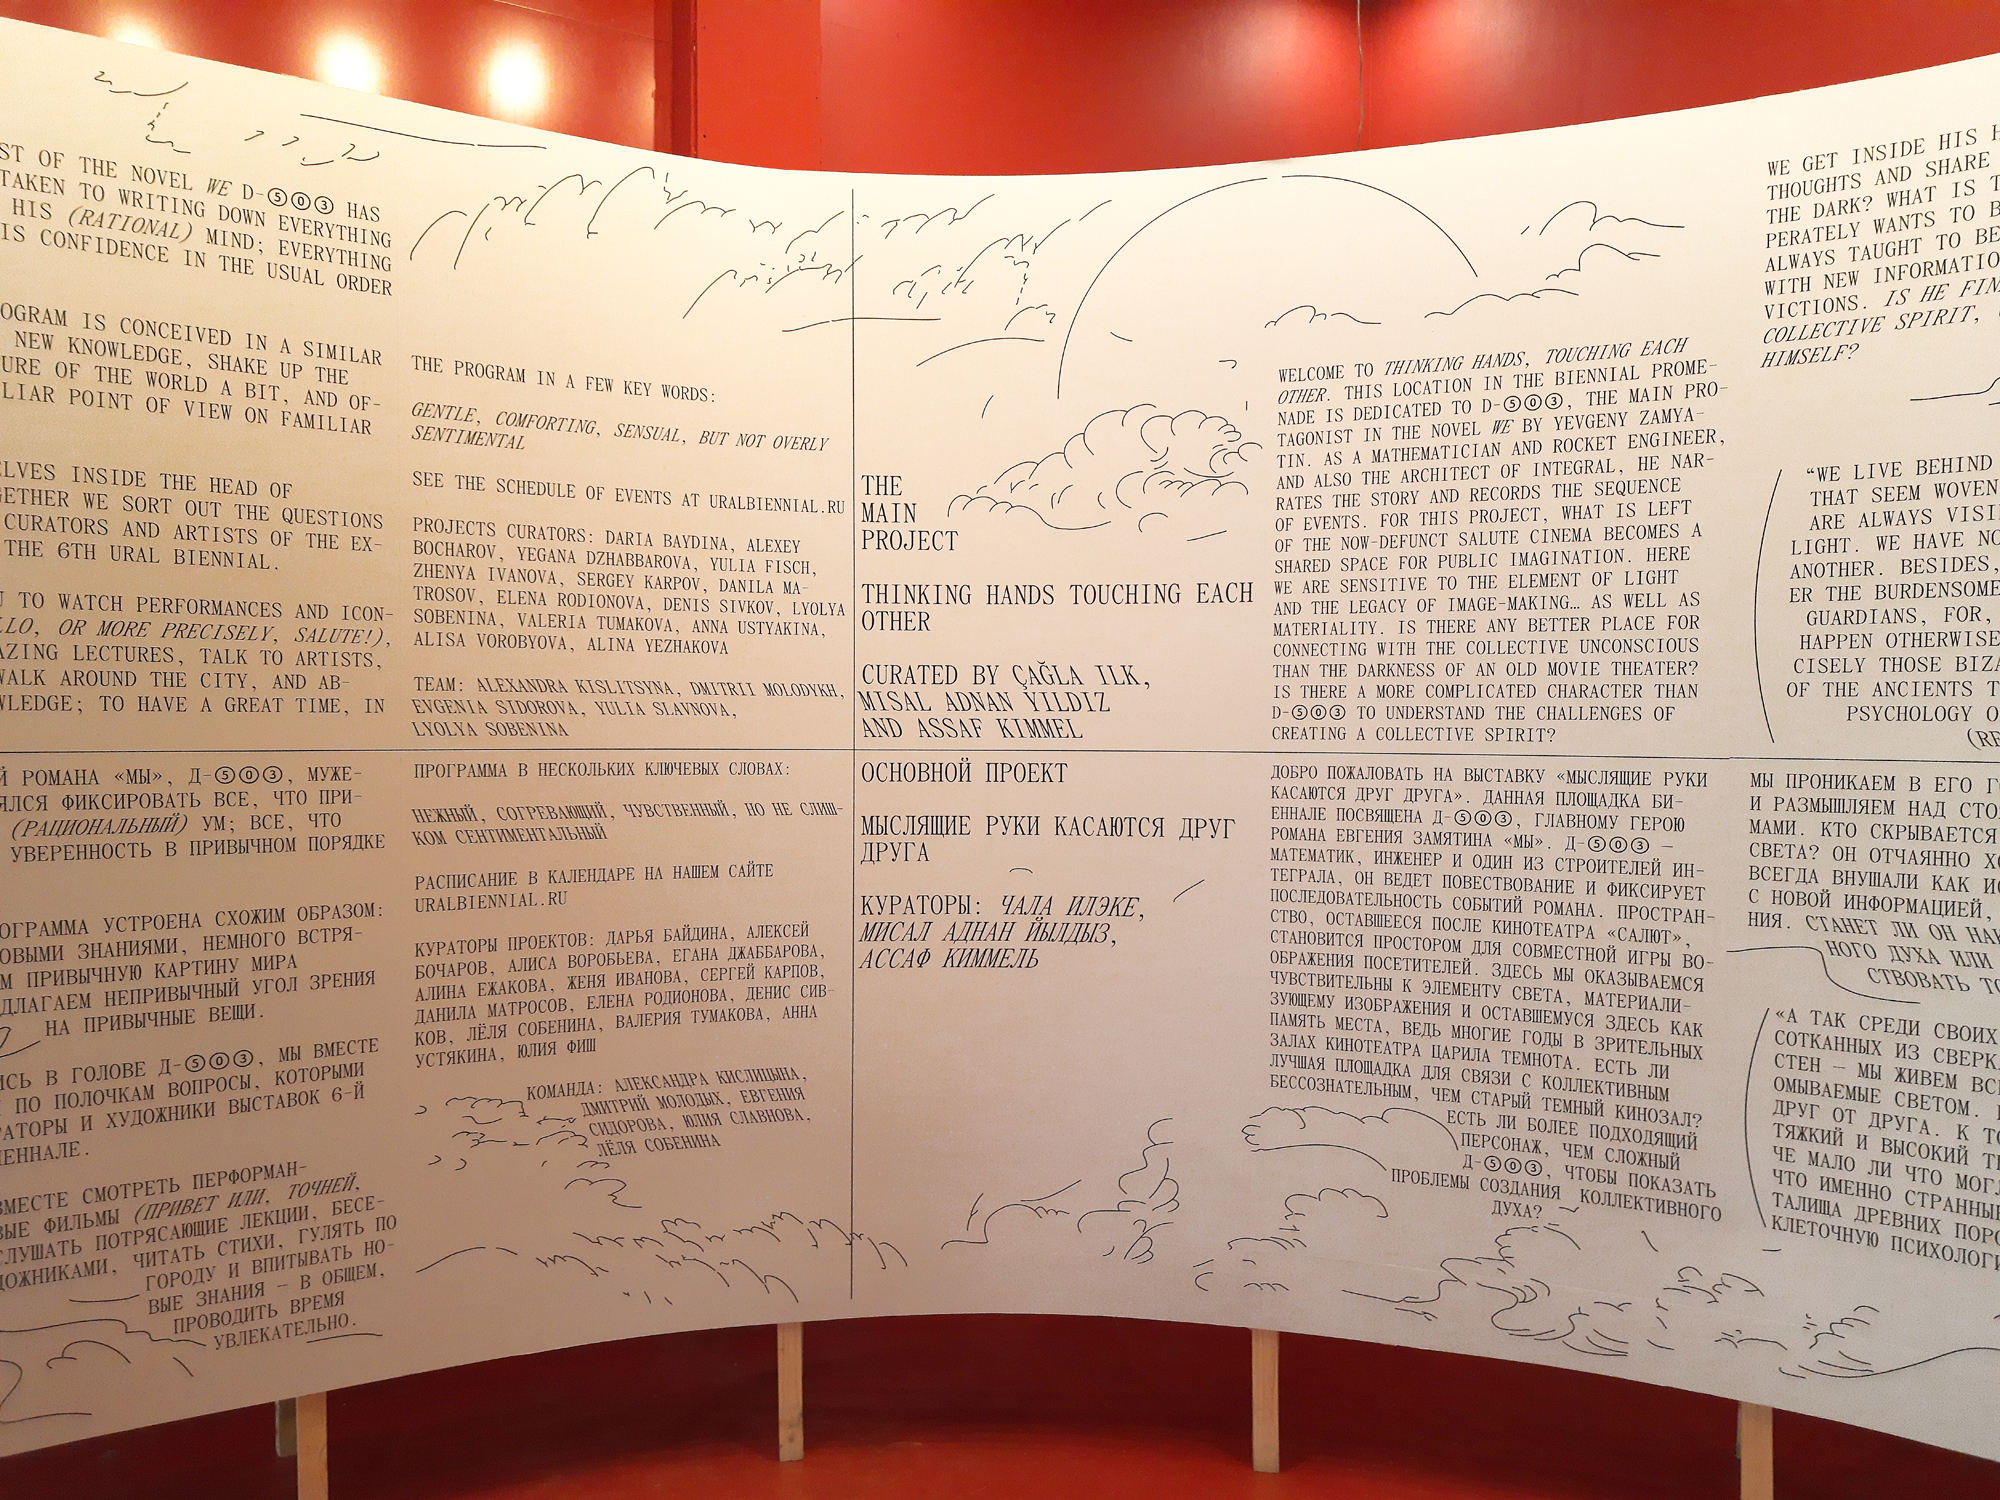 ST OF THE NOVEL WE D-⑤⓪③ HAS
TAKEN TO WRITING DOWN EVERYTHING
HIS (RATIONAL) MIND; EVERYTHING
IS CONFIDENCE IN THE USUAL ORDER
OGRAM IS CONCEIVED IN A SIMILAR
NEW KNOWLEDGE, SHAKE UP THE
URE OF THE WORLD A BIT, AND OF-
LIAR POINT OF VIEW ON FAMILIAR
ELVES INSIDE THE HEAD OF
GETHER WE SORT OUT THE QUESTIONS
CURATORS AND ARTISTS OF THE EX-
THE 6TH URAL BIENNIAL.
U TO WATCH PERFORMANCES AND ICON-
LLO, OR MORE PRECISELY, SALUTE!),
AZING LECTURES, TALK TO ARTISTS,
WALK AROUND THE CITY, AND AB-
WLEDGE; TO HAVE A GREAT TIME, IN
THE PROGRAM IN A FEW KEY WORDS:
GENTLE, COMFORTING, SENSUAL, BUT NOT OVERLY
SENTIMENTAL
SEE THE SCHEDULE OF EVENTS AT URALBIENNIAL.RU
PROJECTS CURATORS: DARIA BAYDINA, ALEXEY
BOCHAROV, YEGANA DZHABBAROVA, YULIA FISCH,
ZHENYA IVANOVA, SERGEY KARPOV, DANILA MA-
TROSOV, ELENA RODIONOVA, DENIS SIVKOV, LYOLYA
SOBENINA, VALERIA TUMAKOVA, ANNA USTYAKINA,
ALISA VOROBYOVA, ALINA YEZHAKOVA
TEAM: ALEXANDRA KISLITSYNA, DMITRII MOLODYKH,
EVGENIA SIDOROVA, YULIA SLAVNOVA,
LYOLYA SOBENINA
THE
MAIN
PROJECT
THINKING HANDS TOUCHING EACH
OTHER
CURATED BY ÇAĞLA ILK,
MISAL ADNAN YILDIZ
AND ASSAF KIMMEL
WELCOME TO THINKING HANDS, TOUCHING EACH
OTHER. THIS LOCATION IN THE BIENNIAL PROME-
NADE IS DEDICATED TO D-⑤⓪③, THE MAIN PRO-
TAGONIST IN THE NOVEL WE BY YEVGENY ZAMYA-
TIN. AS A MATHEMATICIAN AND ROCKET ENGINEER,
AND ALSO THE ARCHITECT OF INTEGRAL, HE NAR-
RATES THE STORY AND RECORDS THE SEQUENCE
OF EVENTS. FOR THIS PROJECT, WHAT IS LEFT
OF THE NOW-DEFUNCT SALUTE CINEMA BECOMES A
SHARED SPACE FOR PUBLIC IMAGINATION. HERE
WE ARE SENSITIVE TO THE ELEMENT OF LIGHT
AND THE LEGACY OF IMAGE-MAKING… AS WELL AS
MATERIALITY. IS THERE ANY BETTER PLACE FOR
CONNECTING WITH THE COLLECTIVE UNCONSCIOUS
THAN THE DARKNESS OF AN OLD MOVIE THEATER?
IS THERE A MORE COMPLICATED CHARACTER THAN
D-⑤⓪③ TO UNDERSTAND THE CHALLENGES OF
CREATING A COLLECTIVE SPIRIT?
WE GET INSIDE HIS H
THOUGHTS AND SHARE
THE DARK? WHAT IS T
PERATELY WANTS TO B
ALWAYS TAUGHT TO BE
WITH NEW INFORMATIO
VICTIONS. IS HE FIN
COLLECTIVE SPIRIT,
HIMSELF?
“WE LIVE BEHIND
THAT SEEM WOVEN
ARE ALWAYS VISI
LIGHT. WE HAVE NO
ANOTHER. BESIDES,
ER THE BURDENSOME
GUARDIANS, FOR,
HAPPEN OTHERWISE
CISELY THOSE BIZA
OF THE ANCIENTS T
PSYCHOLOGY O
(RE
Й РОМАНА «МЫ», Д-⑤⓪③, МУЖЕ-
ЯЛСЯ ФИКСИРОВАТЬ ВСЕ, ЧТО ПРИ-
(РАЦИОНАЛЬНЫЙ) УМ; ВСЕ, ЧТО
УВЕРЕННОСТЬ В ПРИВЫЧНОМ ПОРЯДКЕ
ОГРАММА УСТРОЕНА СХОЖИМ ОБРАЗОМ:
ОВЫМИ ЗНАНИЯМИ, НЕМНОГО ВСТРЯ-
М ПРИВЫЧНУЮ КАРТИНУ МИРА
ДЛАГАЕМ НЕПРИВЫЧНЫЙ УГОЛ ЗРЕНИЯ
НА ПРИВЫЧНЫЕ ВЕЩИ.
ИСЬ В ГОЛОВЕ Д-⑤⓪③, МЫ ВМЕСТЕ
ПО ПОЛОЧКАМ ВОПРОСЫ, КОТОРЫМИ
РАТОРЫ И ХУДОЖНИКИ ВЫСТАВОК 6-Й
ИЕННАЛЕ.
ВМЕСТЕ СМОТРЕТЬ ПЕРФОРМАН-
ВЫЕ ФИЛЬМЫ (ПРИВЕТ ИЛИ, ТОЧНЕЙ,
СЛУШАТЬ ПОТРЯСАЮЩИЕ ЛЕКЦИИ, БЕСЕ-
ДОЖНИКАМИ, ЧИТАТЬ СТИХИ, ГУЛЯТЬ ПО
ГОРОДУ И ВПИТЫВАТЬ НО-
ВЫЕ ЗНАНИЯ — В ОБЩЕМ,
ПРОВОДИТЬ ВРЕМЯ
УВЛЕКАТЕЛЬНО.
ПРОГРАММА В НЕСКОЛЬКИХ КЛЮЧЕВЫХ СЛОВАХ:
НЕЖНЫЙ, СОГРЕВАЮЩИЙ, ЧУВСТВЕННЫЙ, НО НЕ СЛИШ-
КОМ СЕНТИМЕНТАЛЬНЫЙ
РАСПИСАНИЕ В КАЛЕНДАРЕ НА НАШЕМ САЙТЕ
URALBIENNIAL.RU
КУРАТОРЫ ПРОЕКТОВ: ДАРЬЯ БАЙДИНА, АЛЕКСЕЙ
БОЧАРОВ, АЛИСА ВОРОБЬЕВА, ЕГАНА ДЖАББАРОВА,
АЛИНА ЕЖАКОВА, ЖЕНЯ ИВАНОВА, СЕРГЕЙ КАРПОВ,
ДАНИЛА МАТРОСОВ, ЕЛЕНА РОДИОНОВА, ДЕНИС СИВ-
КОВ, ЛЁЛЯ СОБЕНИНА, ВАЛЕРИЯ ТУМАКОВА, АННА
УСТЯКИНА, ЮЛИЯ ФИШ
КОМАНДА: АЛЕКСАНДРА КИСЛИЦЫНА,
ДМИТРИЙ МОЛОДЫХ, ЕВГЕНИЯ
СИДОРОВА, ЮЛИЯ СЛАВНОВА,
ЛЁЛЯ СОБЕНИНА
ОСНОВНОЙ ПРОЕКТ
МЫСЛЯЩИЕ РУКИ КАСАЮТСЯ ДРУГ
ДРУГА
КУРАТОРЫ: ЧАЛА ИЛЭКЕ,
МИСАЛ АДНАН ЙЫЛДЫЗ,
АССАФ КИММЕЛЬ
ДОБРО ПОЖАЛОВАТЬ НА ВЫСТАВКУ «МЫСЛЯЩИЕ РУКИ
КАСАЮТСЯ ДРУГ ДРУГА». ДАННАЯ ПЛОЩАДКА БИ-
ЕННАЛЕ ПОСВЯЩЕНА Д-⑤⓪③, ГЛАВНОМУ ГЕРОЮ
РОМАНА ЕВГЕНИЯ ЗАМЯТИНА «МЫ». Д-⑤⓪③ —
МАТЕМАТИК, ИНЖЕНЕР И ОДИН ИЗ СТРОИТЕЛЕЙ ИН-
ТЕГРАЛА, ОН ВЕДЕТ ПОВЕСТВОВАНИЕ И ФИКСИРУЕТ
ПОСЛЕДОВАТЕЛЬНОСТЬ СОБЫТИЙ РОМАНА. ПРОСТРАН-
СТВО, ОСТАВШЕЕСЯ ПОСЛЕ КИНОТЕАТРА «САЛЮТ»,
СТАНОВИТСЯ ПРОСТОРОМ ДЛЯ СОВМЕСТНОЙ ИГРЫ ВО-
ОБРАЖЕНИЯ ПОСЕТИТЕЛЕЙ. ЗДЕСЬ МЫ ОКАЗЫВАЕМСЯ
ЧУВСТВИТЕЛЬНЫ К ЭЛЕМЕНТУ СВЕТА, МАТЕРИАЛИ-
ЗУЮЩЕМУ ИЗОБРАЖЕНИЯ И ОСТАВШЕМУСЯ ЗДЕСЬ КАК
ПАМЯТЬ МЕСТА, ВЕДЬ МНОГИЕ ГОДЫ В ЗРИТЕЛЬНЫХ
ЗАЛАХ КИНОТЕАТРА ЦАРИЛА ТЕМНОТА. ЕСТЬ ЛИ
ЛУЧШАЯ ПЛОЩАДКА ДЛЯ СВЯЗИ С КОЛЛЕКТИВНЫМ
БЕССОЗНАТЕЛЬНЫМ, ЧЕМ СТАРЫЙ ТЕМНЫЙ КИНОЗАЛ?
ЕСТЬ ЛИ БОЛЕЕ ПОДХОДЯЩИЙ
ПЕРСОНАЖ, ЧЕМ СЛОЖНЫЙ
Д-⑤⓪③, ЧТОБЫ ПОКАЗАТЬ
ПРОБЛЕМЫ СОЗДАНИЯ КОЛЛЕКТИВНОГО
ДУХА?
МЫ ПРОНИКАЕМ В ЕГО ГО
И РАЗМЫШЛЯЕМ НАД СТО
МАМИ. КТО СКРЫВАЕТСЯ
СВЕТА? ОН ОТЧАЯННО ХО
ВСЕГДА ВНУШАЛИ КАК ИС
С НОВОЙ ИНФОРМАЦИЕЙ,
НИЯ. СТАНЕТ ЛИ ОН НАК
НОГО ДУХА ИЛИ
СТВОВАТЬ ТО
«А ТАК СРЕДИ СВОИХ
СОТКАННЫХ ИЗ СВЕРК
СТЕН — МЫ ЖИВЕМ ВС
ОМЫВАЕМЫЕ СВЕТОМ.
ДРУГ ОТ ДРУГА. К ТО
ТЯЖКИЙ И ВЫСОКИЙ Т
ЧЕ МАЛО ЛИ ЧТО МОГ
ЧТО ИМЕННО СТРАННЫЕ
ТАЛИЩА ДРЕВНИХ ПОРО
КЛЕТОЧНУЮ ПСИХОЛОГИ